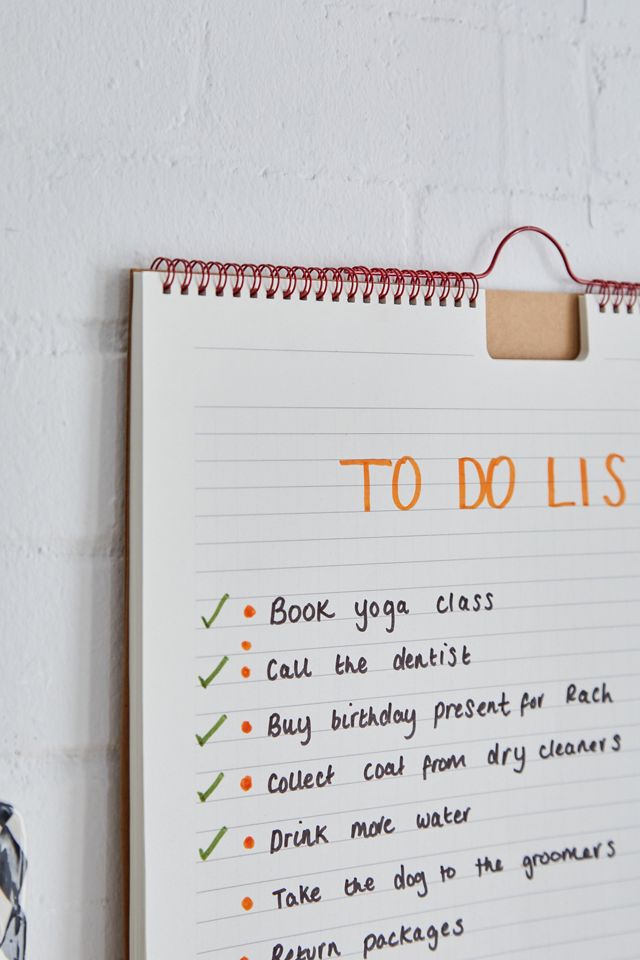 TO DO LIS
Book yoga class
Call the dentist
Buy birthday present for Rach
Collect coat from dry cleaners
Drink more water
Take the dog to the groomers
Return packages